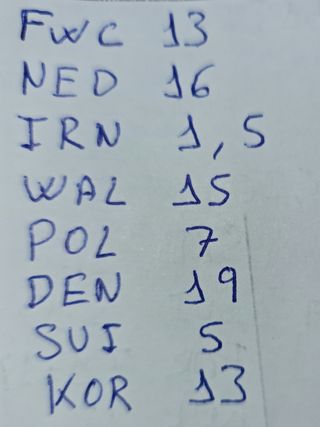 FWC 13
NED 16
IRN 1, 5
WAL 15
POL 7
DEN 19
SUI 5
KOR 13